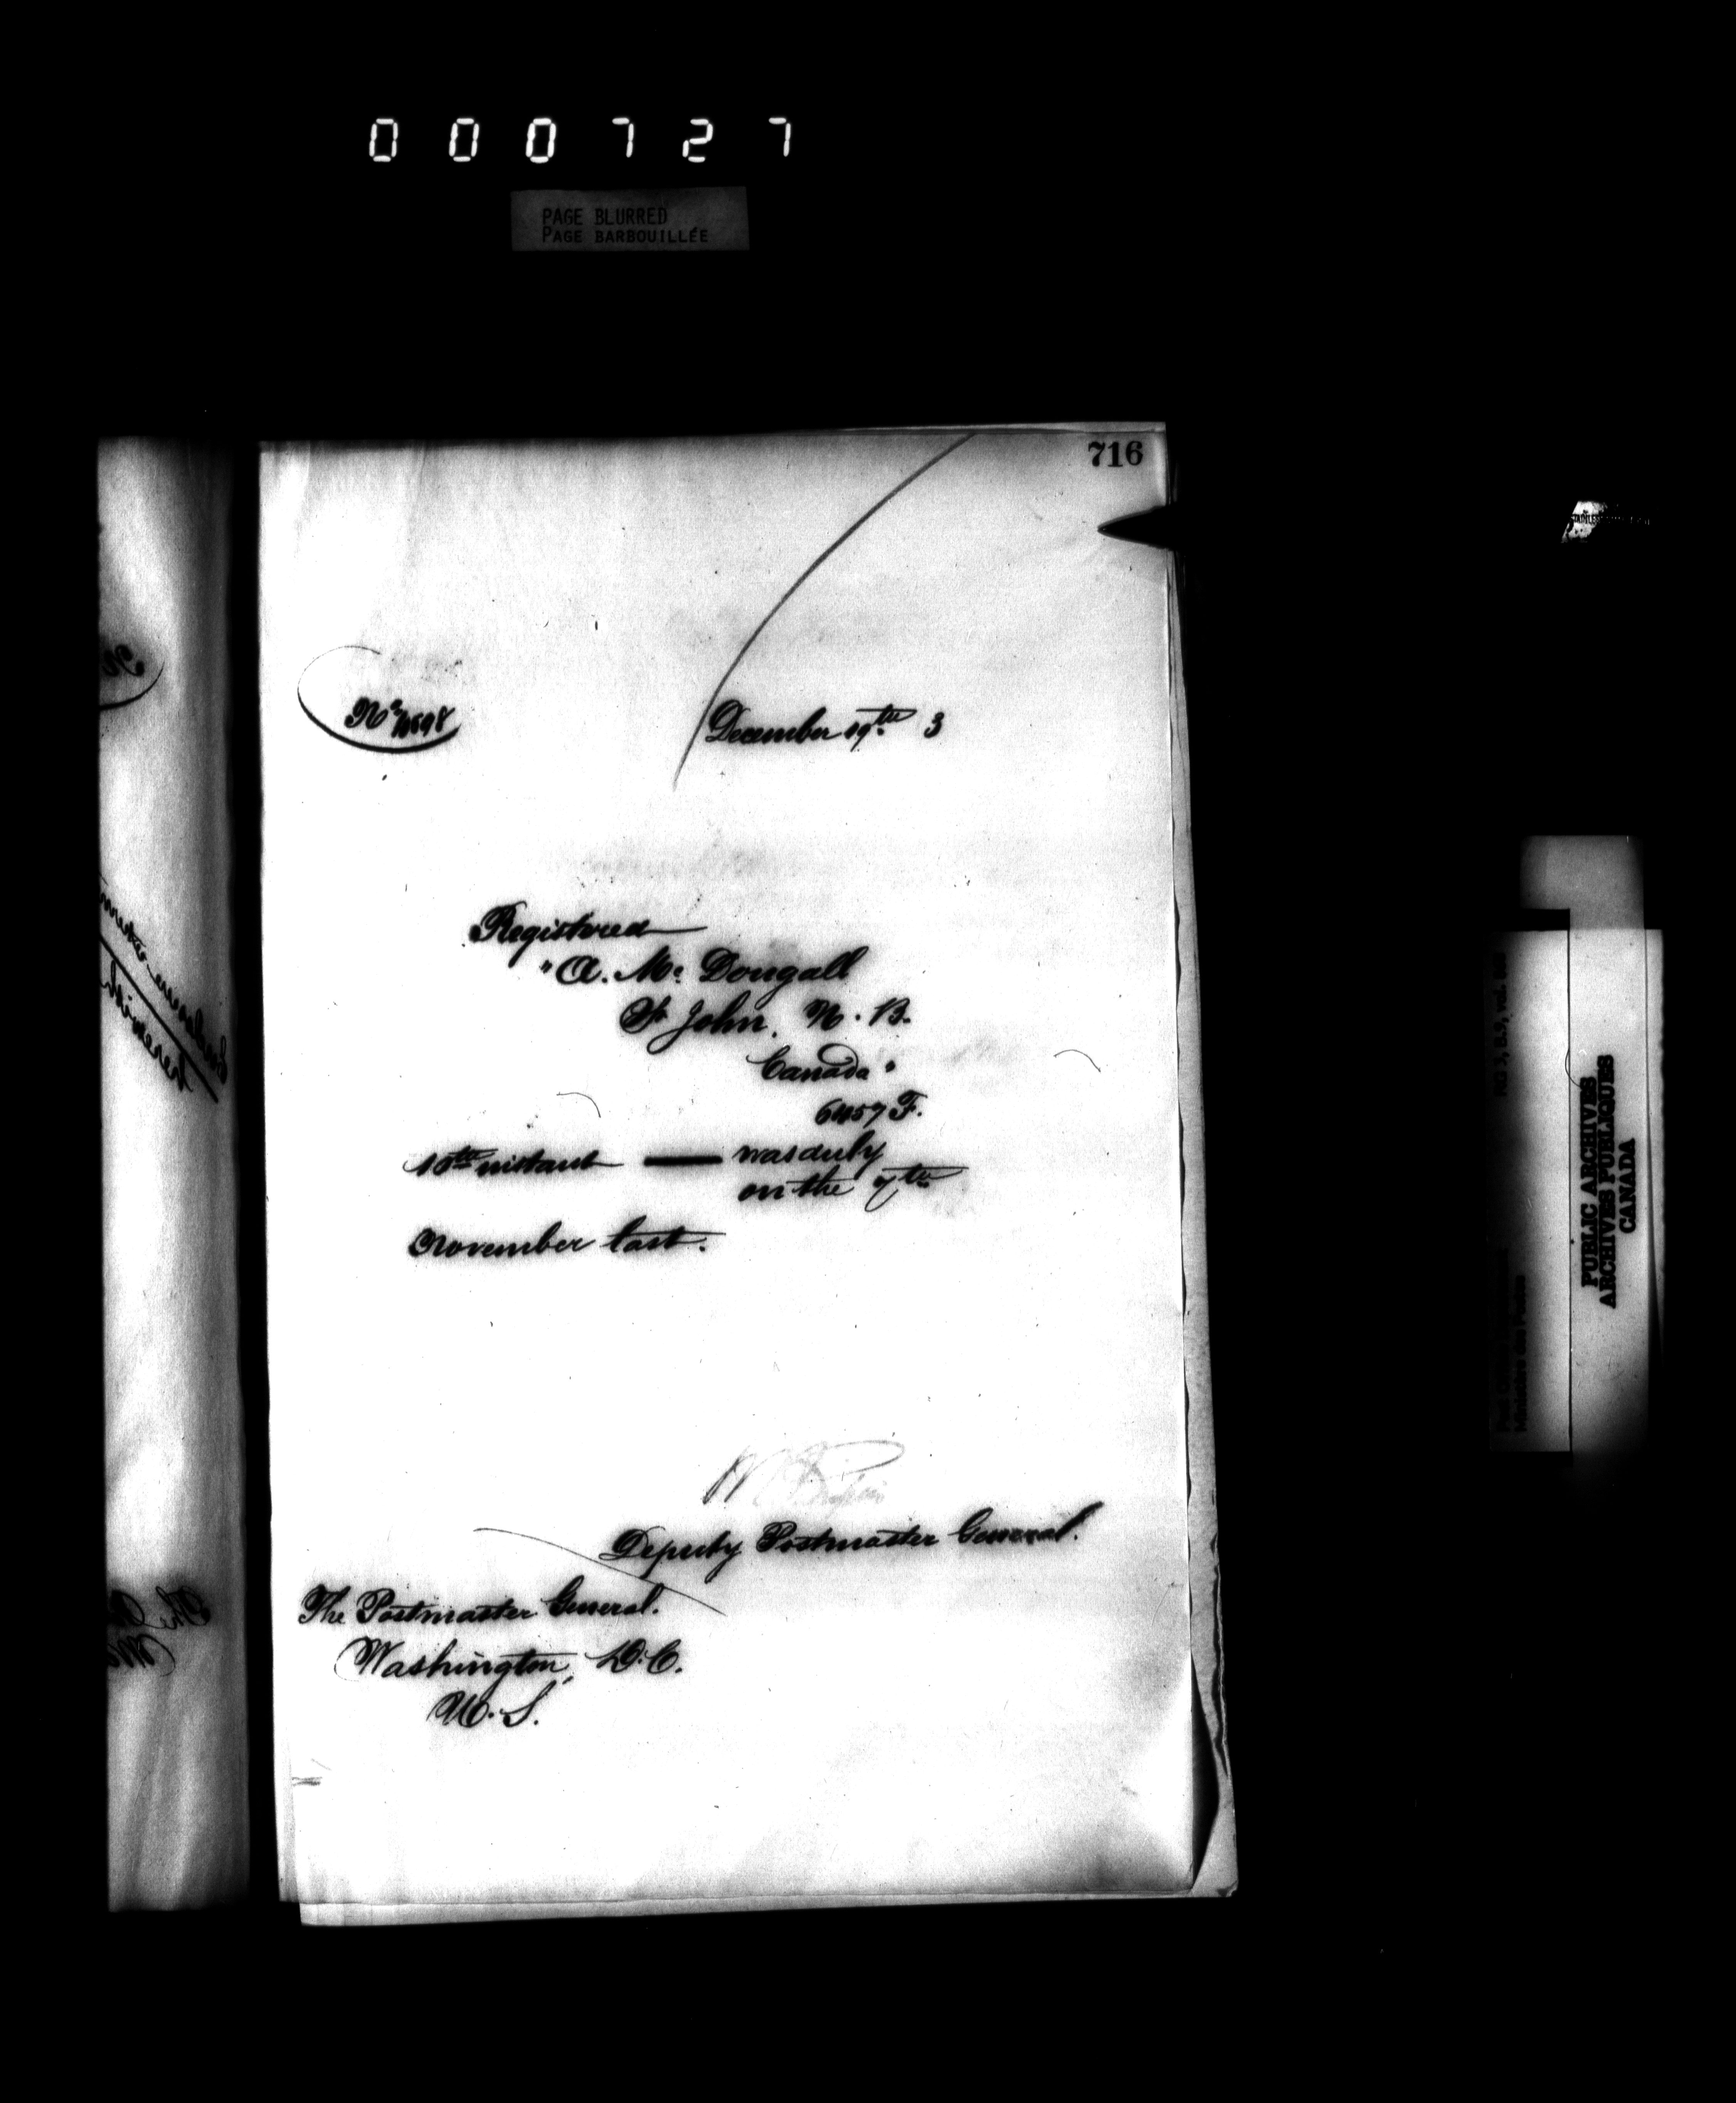 000727
PAGE BLURRED
PAGE BARBOUILLÉE
716
December 19th 3
Registered
"A. Mc Dougall
St John. N. B.
Canada"
6457 F.
10th instant — was duly
on the 7th
November last.
Deputy Postmaster General.
The Postmaster General.
Washington, D.C.
U. S.
PUBLIC ARCHIVES
ARCHIVES PUBLIQUES
CANADA